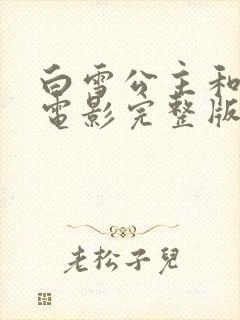 白雪公主和
電影完整版
老松子兒